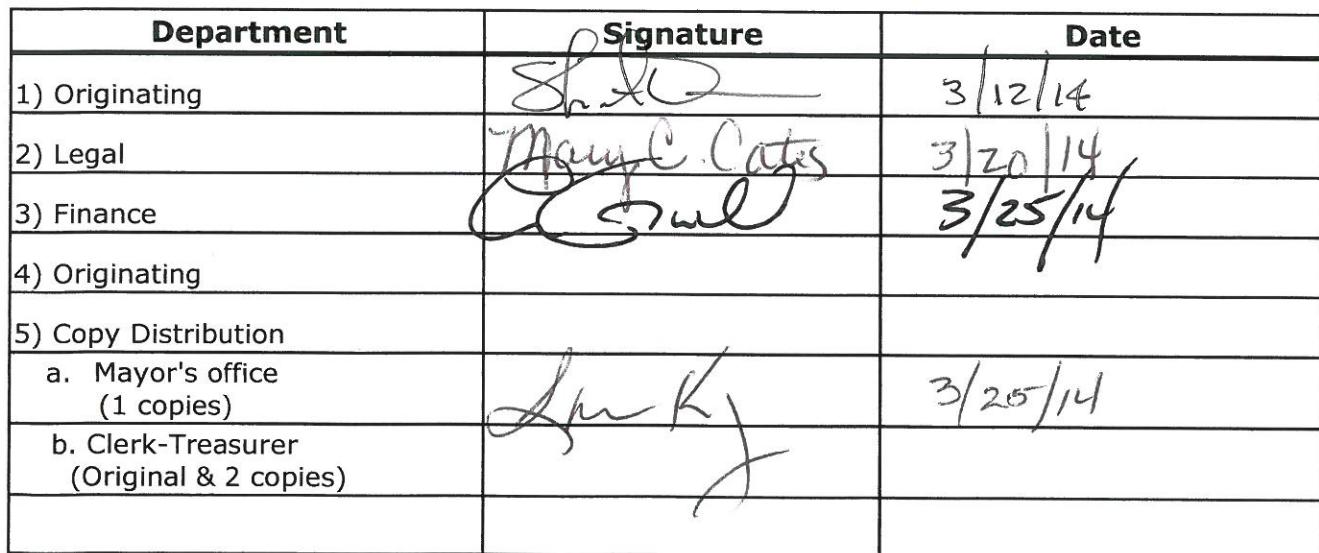 Department Signature Date
1) Originating 3/12/14
2) Legal Mary C. Cates 3/20/14
3) Finance 3/25/14
4) Originating
5) Copy Distribution
a. Mayor's office
(1 copies) 3/25/14
b. Clerk-Treasurer
(Original & 2 copies)